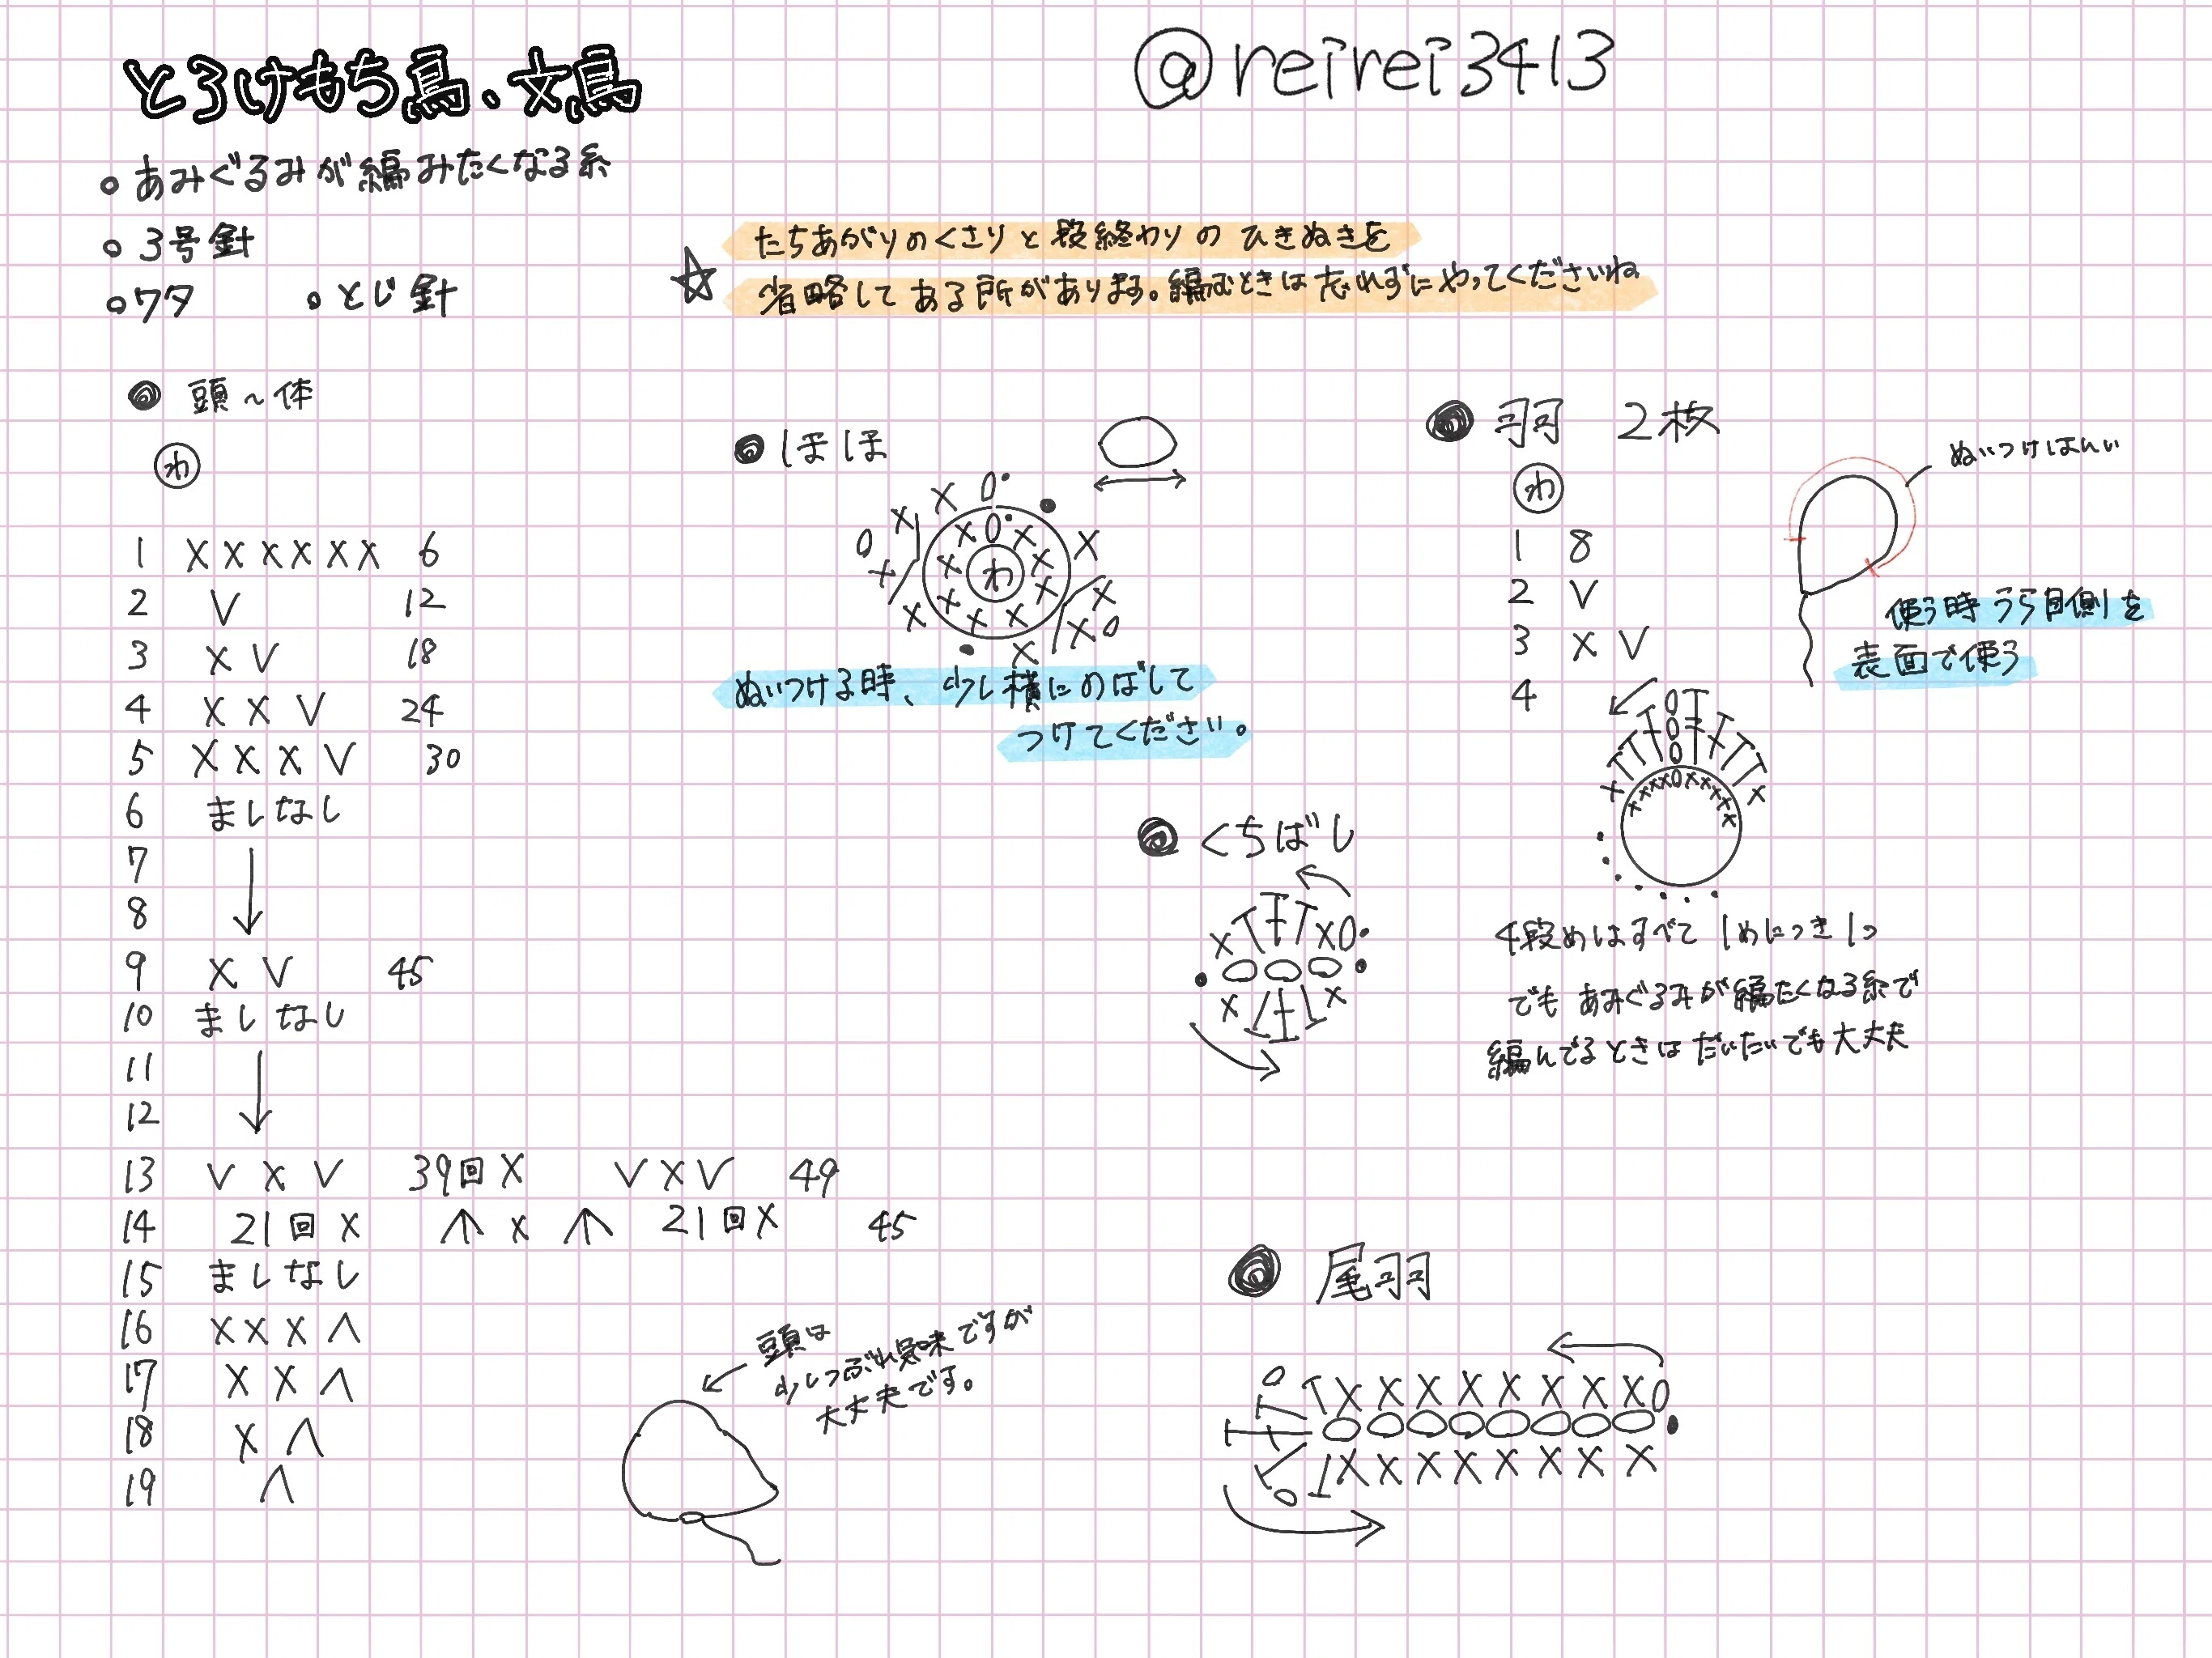 とろけもち鳥、文鳥
@reirei3413
。あみぐるみが編みたくなる糸
。3号針
。ワタ 。とじ針
☆ たちあがりのくさりと段終わりのひきぬきを
省略してある所があります。編むときは忘れずにやってくださいね
● 頭~体
わ
1 X X X X X X 6
2 V 12
3 X V 18
4 X X V 24
5 X X X V 30
6 ましなし
7
8
9 X V 45
10 ましなし
11
12
13 V X V 39回X V X V 49
14 21回X ∧ X ∧ 21回X 45
15 ましなし
16 X X X ∧
17 X X ∧
18 X ∧
19 ∧
頭は
少しつぶれ気味ですが
大丈夫です。
● ほほ
わ
ぬいつける時、少し横にのばして
つけてください。
● くちばし
● 羽 2枚
わ
1 8
2 V
3 X V
4
ぬいつけはんい
使う時うら目側を
表面で使う
4段めはすべて1めにつき1つ
でもあみぐるみが編たくなる糸で
編んでるときはだいたいでも大丈夫
● 尾羽